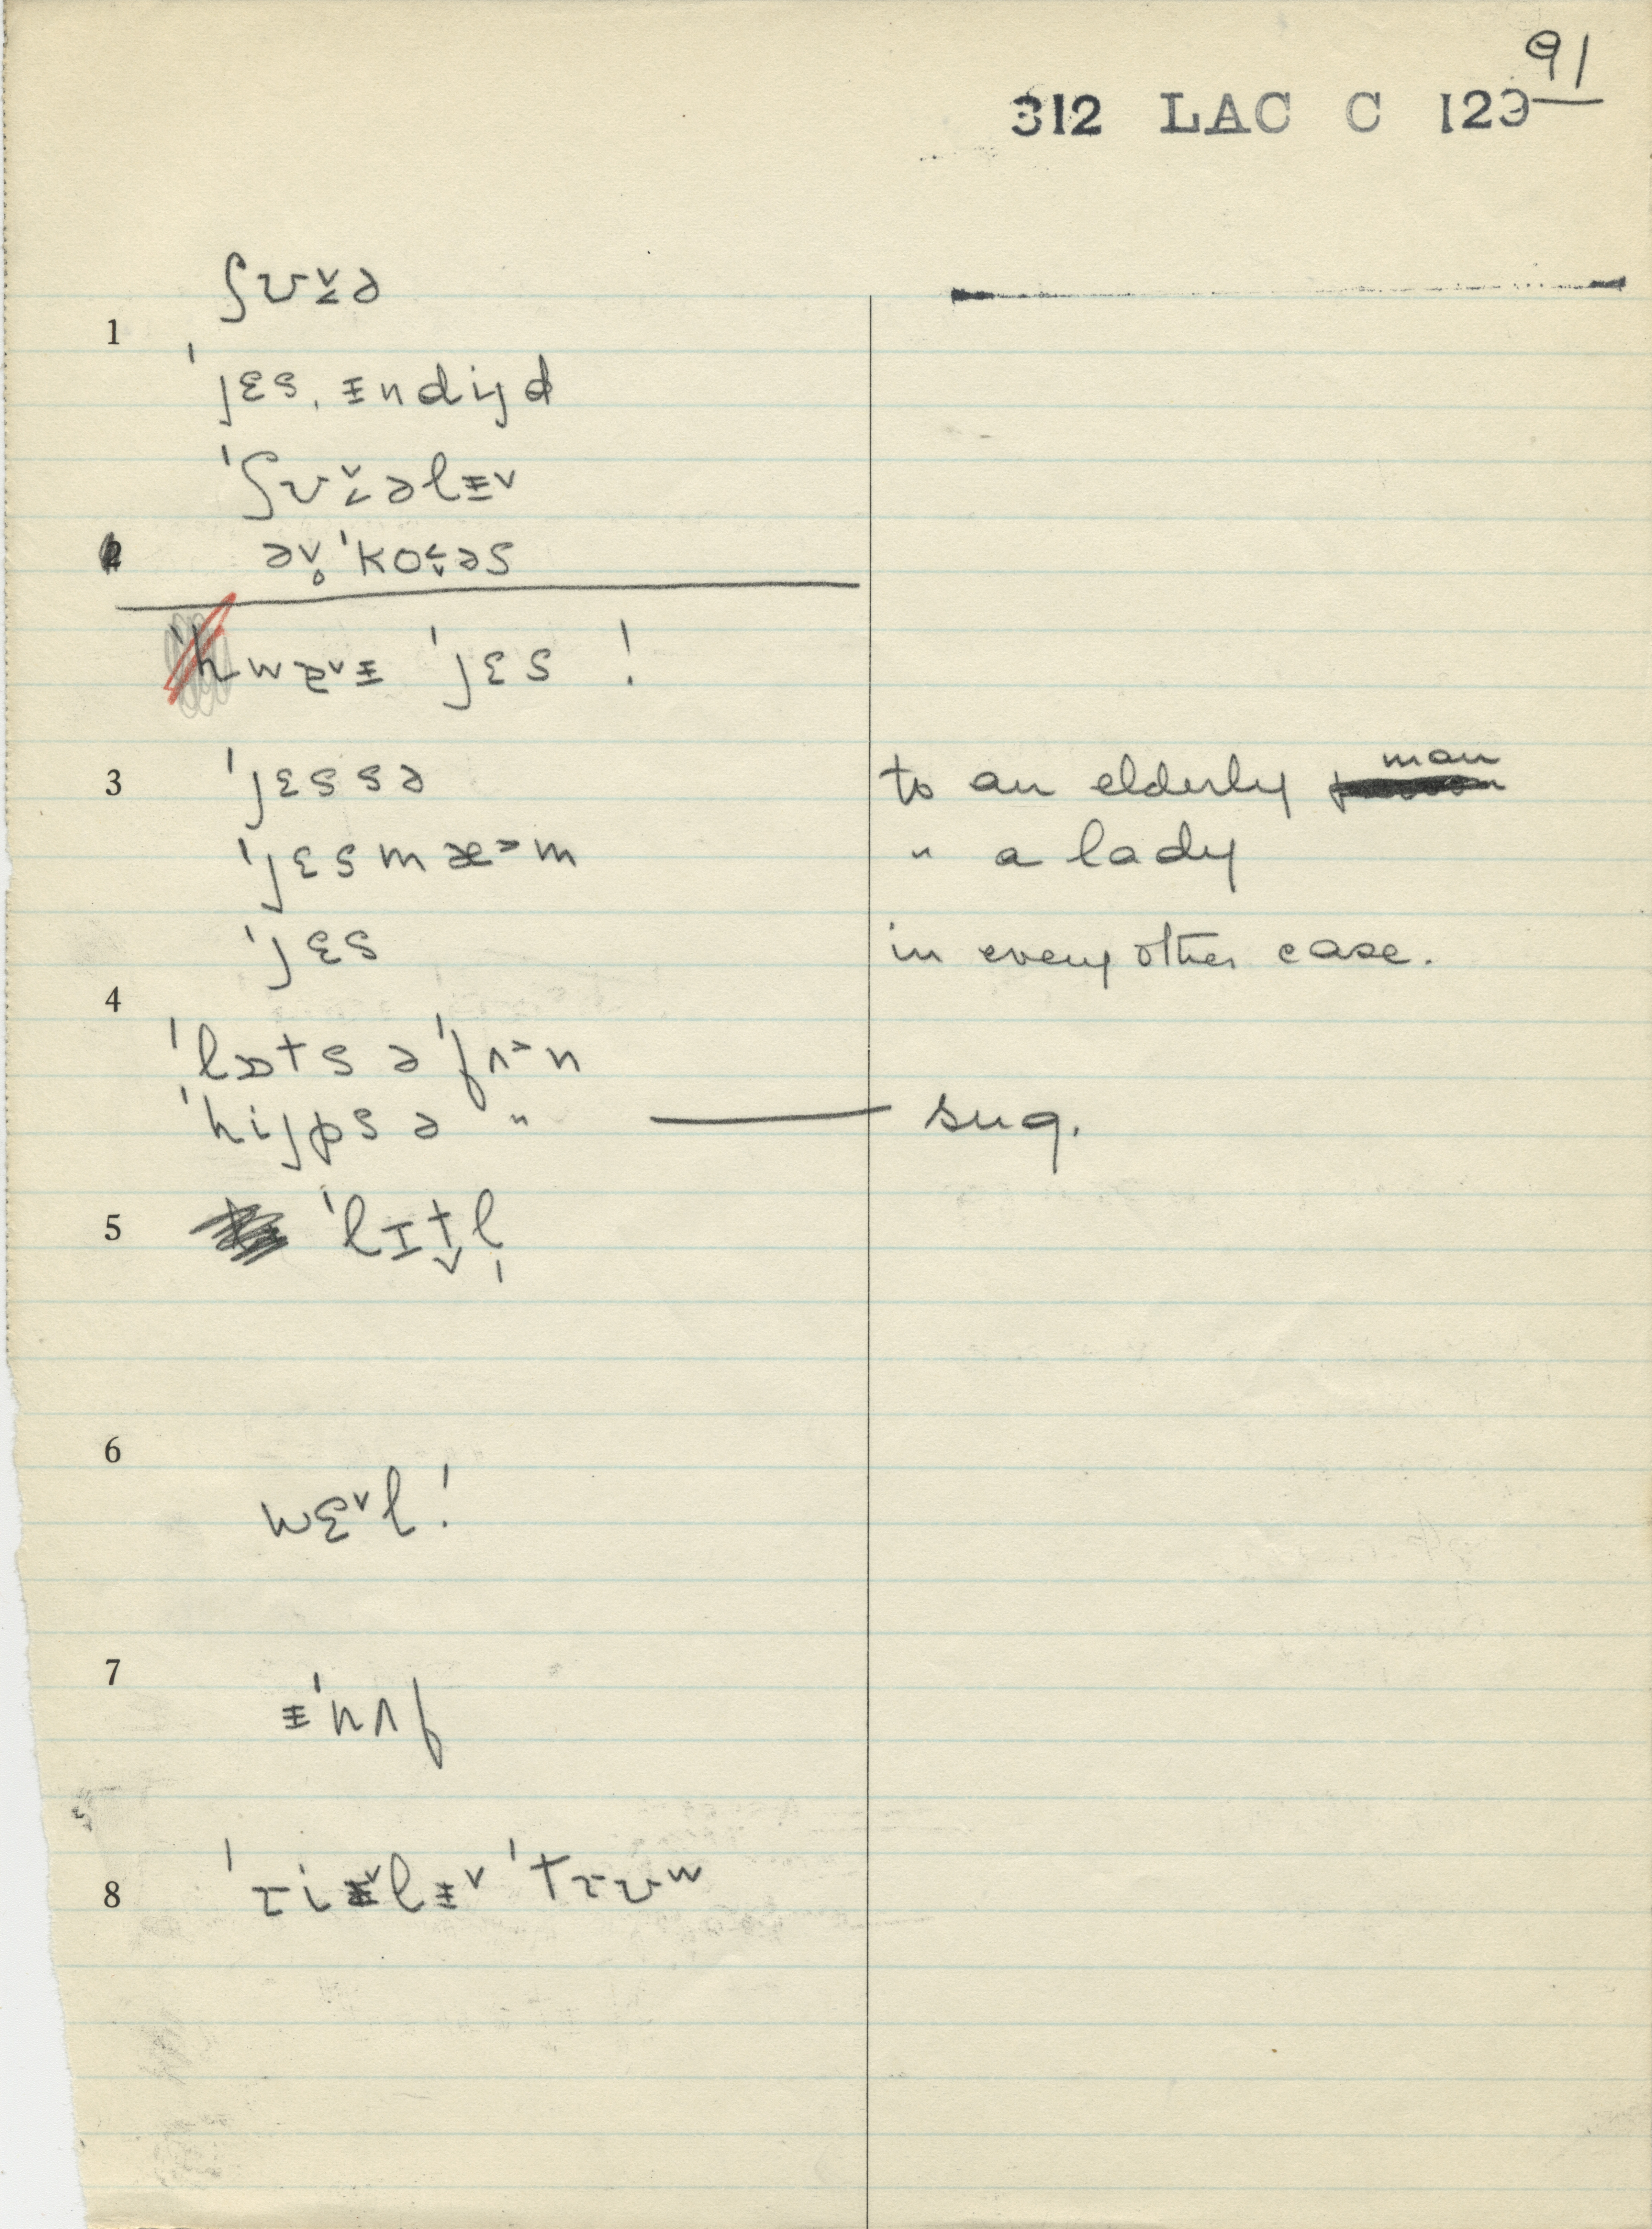 91
312 LAC C 129
ʃʊv̬ə
1
ˈjɛs, ɪ̵ndijd
ˈʃʊv̬əlɪ̵v
2 əv̥ ˈkov̬əs
ˈhwɛvɪ̵ ˈjɛs !
3 ˈjɛssə to an elderly man
ˈjɛsmæ˃m " a lady
ˈjɛs in every other case.
4
ˈlɒts ə ˈfʌ˃n
ˈhijps ə " — sug.
5 ˈlɪt̬l̩
6
wɛvl !
7
ɪ̵ˈnʌf
8 ˈɹiɪ̵vlɪ̵v ˈtɹʊw